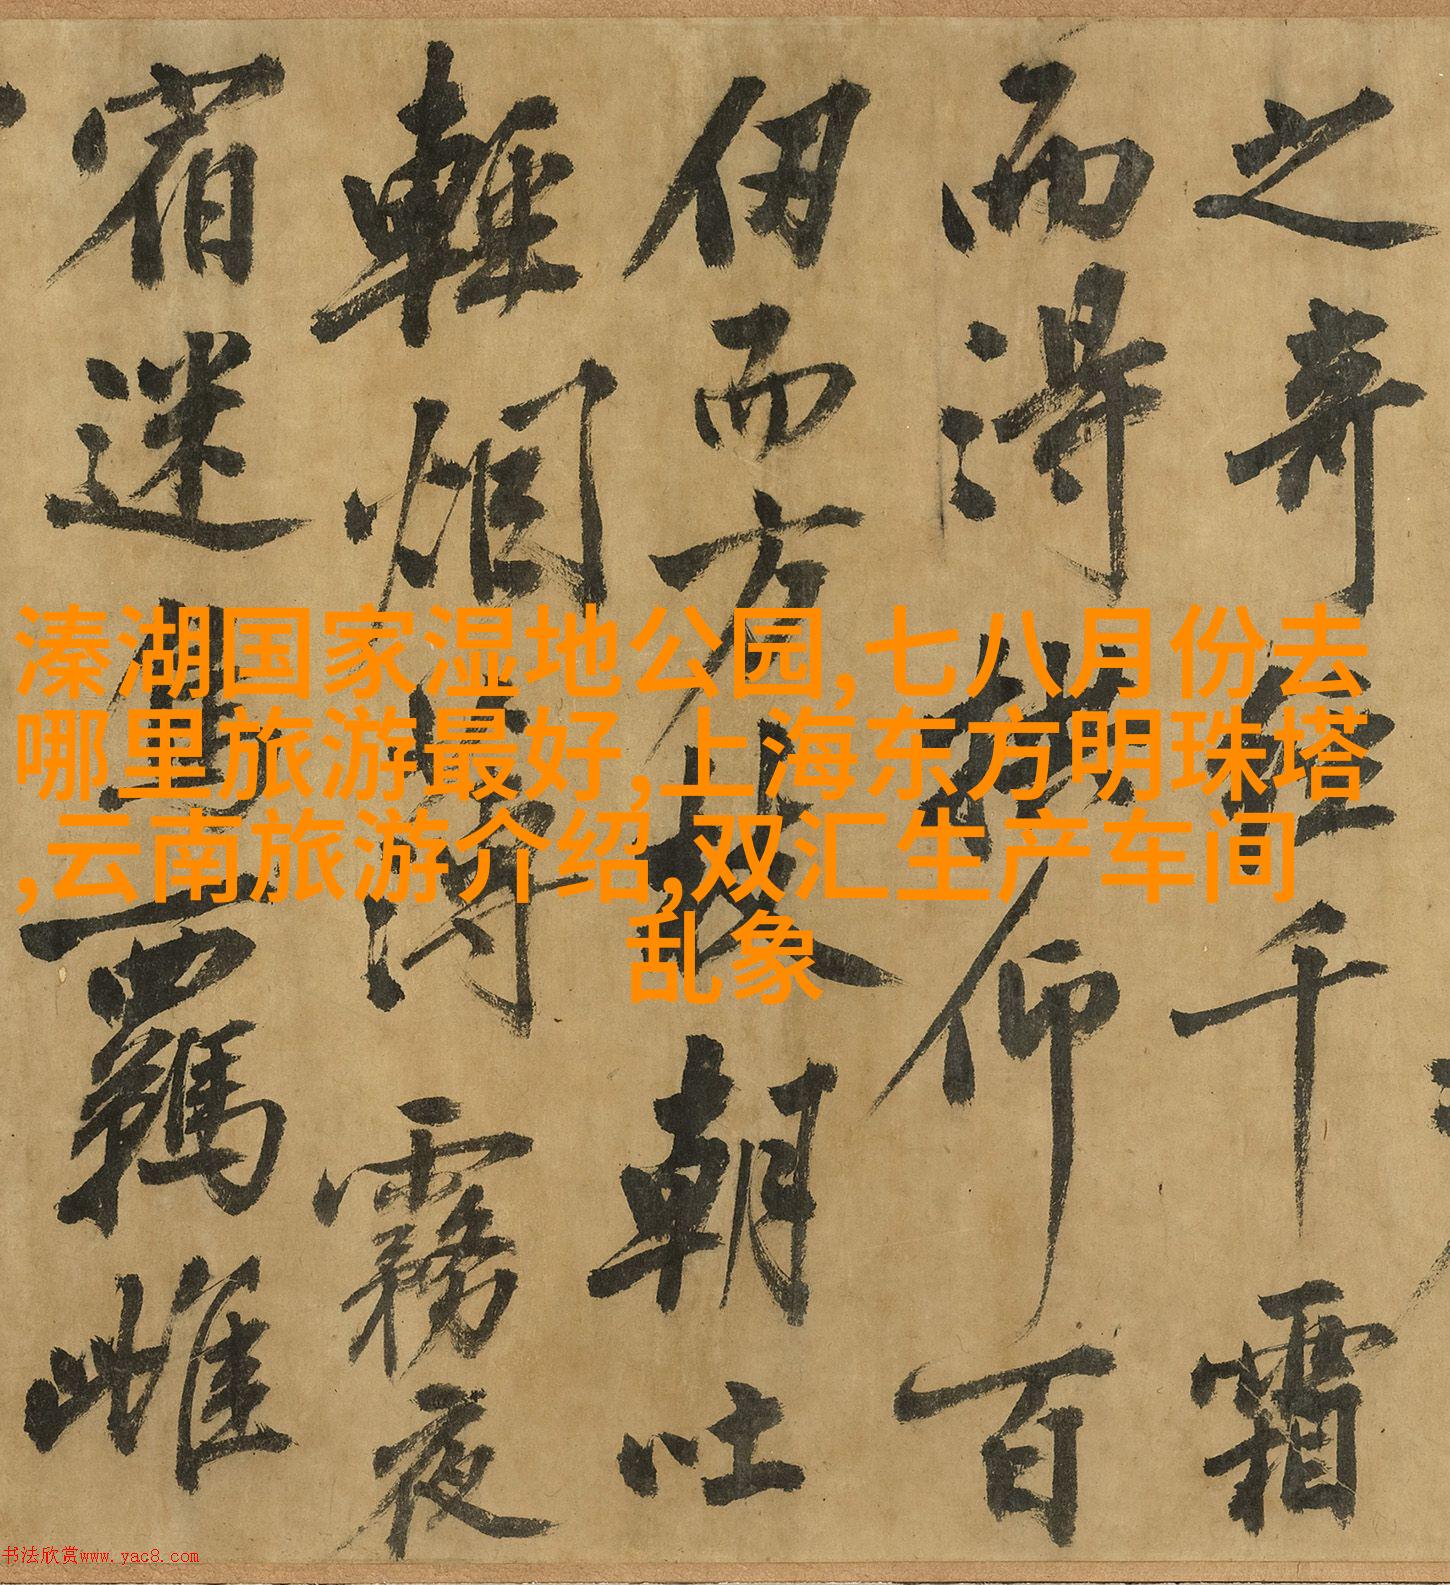 之奇經千霜
而得仰百
仞而方枝朝吐
輕烟薄霧夜
宿迷鳥羈雌
溱湖国家湿地公园,七八月份去
哪里旅游最好,上海东方明珠塔
,云南旅游介绍,双汇生产车间
乱象
书法欣赏www.yac8.com